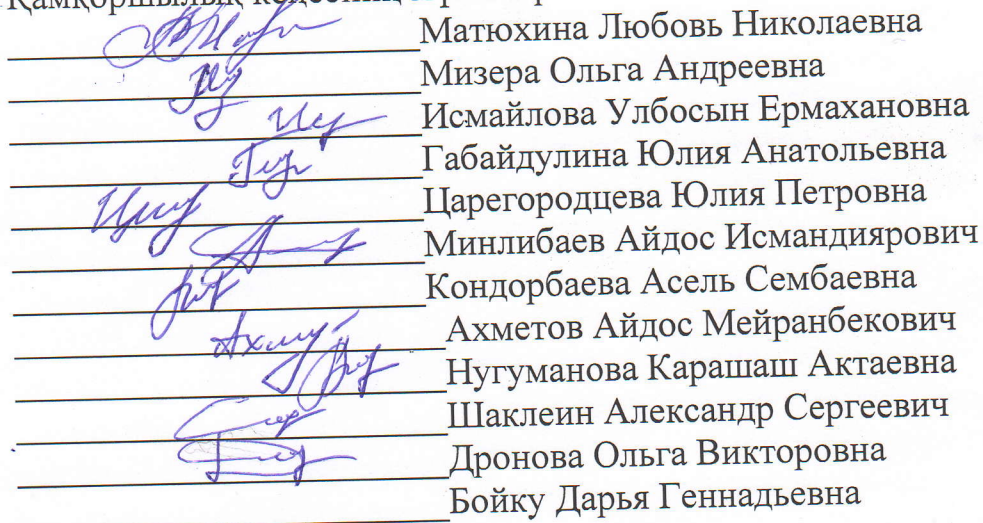 Қамқоршылық кеңесінің
Матюхина Любовь Николаевна
Мизера Ольга Андреевна
Исмайлова Улбосын Ермахановна
Габайдулина Юлия Анатольевна
Царегородцева Юлия Петровна
Минлибаев Айдос Исмандиярович
Кондорбаева Асель Сембаевна
Ахметов Айдос Мейранбекович
Нугуманова Карашаш Актаевна
Шаклеин Александр Сергеевич
Дронова Ольга Викторовна
Бойку Дарья Геннадьевна